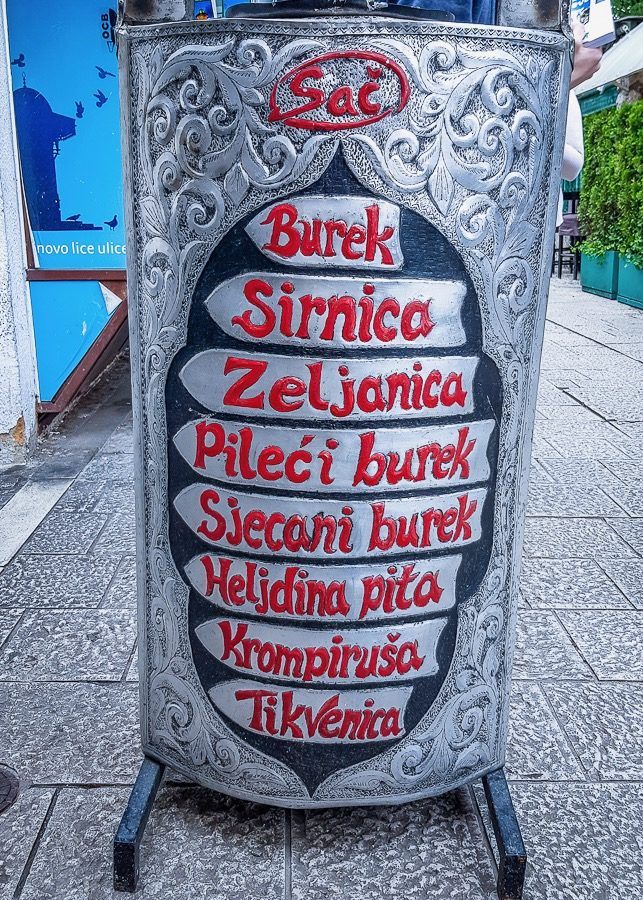 OCB
novo lice ulice
Sač
Burek
Sirnica
Zeljanica
Pileći burek
Sjecani burek
Heljdina pita
Krompiruša
Tikvenica